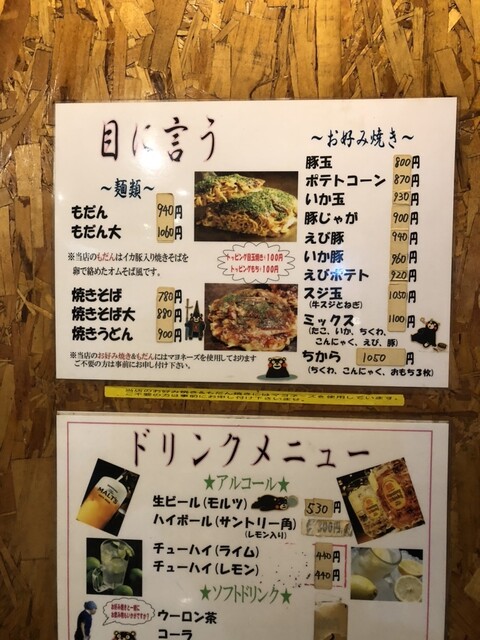 目に言う
～麺類～
もだん 940円
もだん大 1060円
※当店のもだんはイカ豚入り焼きそばを
卵で絡めたオムそば風です。
焼きそば 780円
焼きそば大 880円
焼きうどん 900円
※当店のお好み焼き&もだんにはマヨネーズを使用しております
ご不要の方は事前にお申し付け下さい。
トッピング目玉焼き・100円
トッピングもち・100円
～お好み焼き～
豚玉 800円
ポテトコーン 870円
いか玉 930円
豚じゃが 900円
えび豚 940円
いか豚 960円
えびポテト 920円
スジ玉 1050円
(牛スジとねぎ)
ミックス 1100円
(たこ、いか、ちくわ、
こんにゃく、えび、豚)
ちから 1050円
(ちくわ、こんにゃく、おもち3枚)
当店のお好み焼き&もだんにはマヨネーズを使用しています。
ご不要の方は事前にお申し付け下さいませ。
ドリンクメニュー
★アルコール★
生ビール(モルツ) 530円
ハイボール(サントリー角) 500円
(レモン入り)
チューハイ(ライム) 440円
チューハイ(レモン) 440円
★ソフトドリンク★
MALT'S
お好み焼きと一緒に
お飲み物もいかがですか?
ウーロン茶
コーラ